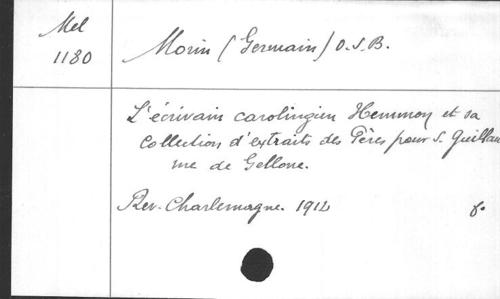 Mel
1180
Morin (Germain) O.S.B.
L'écrivain carolingien Hemmon et sa
collection d'extraits des Pères pour S. Guillau
me de Gellone.
Rev. Charlemagne. 1912 f.